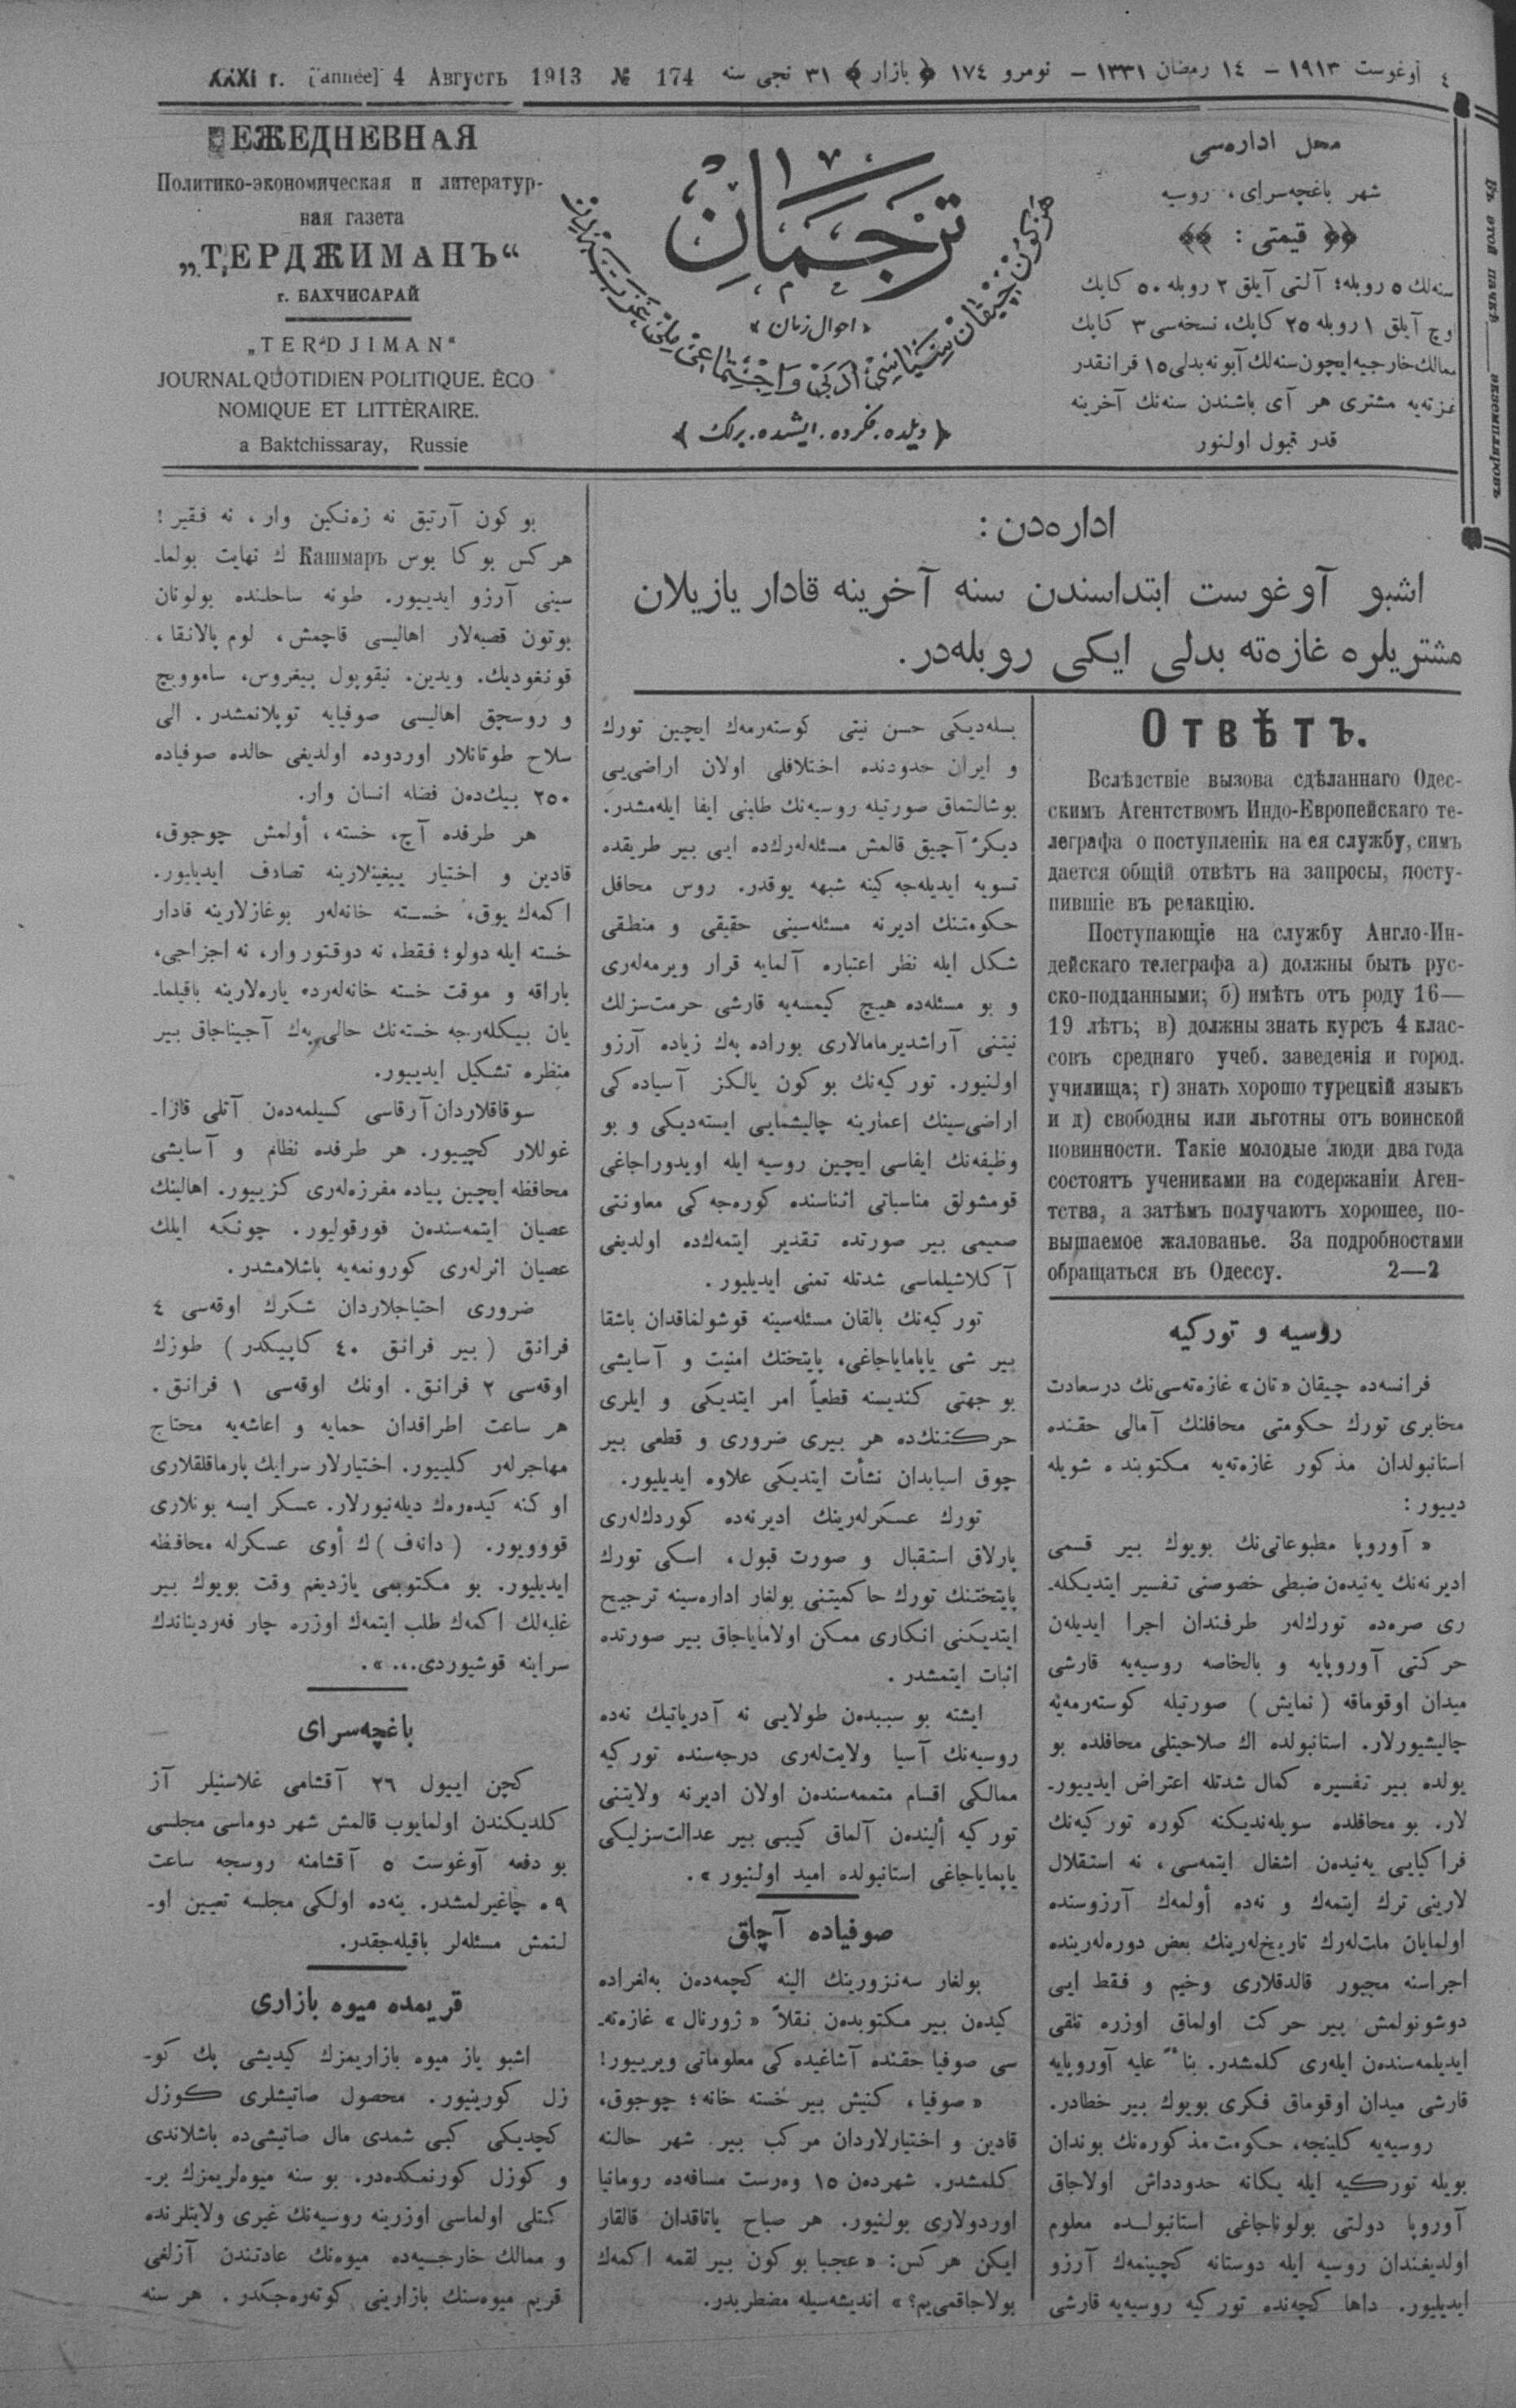 XXXI г. [année] 4 Августъ 1913 № 174
٤ آوغوست ١٩١٣ – ١٤ رمضان ١٣٣١ – نومرو ١٧٤ ﴿ بازار ﴾ ٣١ نجی سنه
ЕЖЕДНЕВНАЯ
Политико-экономическая и литератур-
ная газета
„ТЕРДЖИМАНЪ“
г. БАХЧИСАРАЙ
„TERDJIMAN“
JOURNAL QUOTIDIEN POLITIQUE. ÈCO
NOMIQUE ET LITTÈRAIRE.
a Baktchissaray, Russie
ترجمان
«احوال زمان»
هرکون چیقان سیاسی، ادبی و اجتماعی ملی غزته‌در
﴿ دیلده. فکرده. ایشده. برلك ﴾
محل اداره‌سی
شهر باغچه‌سرای، روسیه
﴿﴿ قیمتی : ﴾﴾
سنه‌لك ٥ روبله؛ آلتی آیلق ٢ روبله ٥٠ کاپك
وچ آیلق ١ روبله ٢٥ کاپك، نسخه‌سی ٣ کاپك
ممالك خارجیه ایچون سنه‌لك آبونه بدلی ١٥ فرانقدر
غزته‌یه مشتری هر آی باشندن سنه‌نك آخرینه
قدر قبول اولنور
Въ этой пачкѣ ____ экземпляровъ
اداره‌دن :
اشبو آوغوست ابتداسندن سنه آخرینه قادار یازیلان
مشتریلره غازه‌ته بدلی ایکی روبله‌در.
Отвѣтъ.
Вслѣдствіе вызова сдѣланнаго Одес-
скимъ Агентствомъ Индо-Европейскаго те-
леграфа о поступленіи на ея службу, симъ
дается общій отвѣтъ на запросы, посту-
пившіе въ редакцію.
Поступающіе на службу Англо-Ин-
дейскаго телеграфа а) должны быть рус-
ско-подданными; б) имѣть отъ роду 16—
19 лѣтъ; в) должны знать курсъ 4 клас-
совъ средняго учеб. заведенія и город.
училища; г) знать хорошо турецкій языкъ
и д) свободны или льготны отъ воинской
повинности. Такіе молодые люди два года
состоятъ учениками на содержаніи Аген-
тства, а затѣмъ получаютъ хорошее, по-
вышаемое жалованье. За подробностями
обращаться въ Одессу. 2—2
روسیه و تورکیه
فرانسه‌ده چیقان «تان» غازه‌ته‌سی‌نك درسعادت
مخابری تورك حکومتی محافلنك آمالی حقنده
استانبولدان مذکور غازه‌ته‌یه مکتوبنده شویله
دییور :
« آوروپا مطبوعاتی‌نك بویوك بیر قسمی
ادیرنه‌نك یه‌نیده‌ن ضبطی خصوصنی تفسیر ایتدیکله-
ری صره‌ده تورك‌له‌ر طرفندان اجرا ایدیله‌ن
حرکتی آوروپایه و بالخاصه روسیه‌یه قارشی
میدان اوقوماقه ( نمایش ) صورتیله کوسته‌رمه‌یه
چالیشیورلار. استانبولده اك صلاحیتلی محافلده بو
یولده بیر تفسیره کمال شدتله اعتراض ایدییور-
لار. بو محافلده سویله‌ندیکنه کوره تورکیه‌نك
فراکیایی یه‌نیده‌ن اشغال ایتمه‌سی، نه استقلال
لارینی ترك ایتمه‌ك و نه‌ده أولمه‌ك آرزوسنده
اولمایان ملت‌له‌رك تاریخ‌له‌رینك بعض دوره‌له‌رینده
اجراسنه مجبور قالدقلاری وخیم و فقط ایی
دوشونولمش بیر حرکت اولماق اوزره تلقی
ایدیلمه‌سنده‌ن ایله‌ری کلمشدر. بناءً علیه آوروپایه
قارشی میدان اوقوماق فکری بویوك بیر خطادر.
روسیه‌یه کلینجه، حکومت مذکوره‌نك بوندان
بویله تورکیه ایله یکانه حدودداش اولاجاق
آوروپا دولتی بولوناجاغی استانبولده معلوم
اولدیغندان روسیه ایله دوستانه کچینمه‌ك آرزو
ایدیلیور. داها کچه‌نده تورکیه روسیه‌یه قارشی
بسله‌دیکی حسن نیتی کوسته‌رمه‌ك ایچین تورك
و ایران حدودنده اختلافلی اولان اراضی‌یی
بوشالتماق صورتیله روسیه‌نك طلبنی ایفا ایله‌مشدر.
دیکر آچیق قالمش مسئله‌له‌رك‌ده ایی بیر طریقده
تسویه ایدیله‌جه‌کینه شبهه یوقدر. روس محافل
حکومتنك ادیرنه مسئله‌سینی حقیقی و منطقی
شکل ایله نظر اعتباره آلمایه قرار ویرمه‌له‌ری
و بو مسئله‌ده هیچ کیمسه‌یه قارشی حرمت‌سزلك
نیتنی آراشدیرمامالاری بوراده په‌ك زیاده آرزو
اولنیور. تورکیه‌نك بو کون یالکز آسیاده‌کی
اراضی‌سینك اعمارینه چالیشمایی ایسته‌دیکی و بو
وظیفه‌نك ایفاسی ایچین روسیه ایله اویدوراجاغی
قومشولق مناسباتی اثناسنده کوره‌جه‌کی معاونتی
صمیمی بیر صورتده تقدیر ایتمه‌ك‌ده اولدیغی
آکلاشیلماسی شدتله تمنی ایدیلیور.
تورکیه‌نك بالقان مسئله‌سینه قوشولماقدان باشقا
بیر شی یاپامایاجاغی، پایتختك امنیت و آسایشی
بو جهتی کندیسنه قطعیاً امر ایتدیکی و ایلری
حرکتنك‌ده هر بیری ضروری و قطعی بیر
چوق اسبابدان نشأت ایتدیکی علاوه ایدیلیور.
تورك عسکرله‌رینك ادیرنه‌ده کوردکله‌ری
پارلاق استقبال و صورت قبول، اسکی تورك
پایتختنك تورك حاکمیتنی بولغار اداره‌سینه ترجیح
ایتدیکنی انکاری ممکن اولامایاجاق بیر صورتده
اثبات ایتمشدر.
ایشته بو سببده‌ن طولایی نه آدریاتیك نه‌ده
روسیه‌نك آسیا ولایت‌له‌ری درجه‌سنده تورکیه
ممالکی اقسام متممه‌سنده‌ن اولان ادیرنه ولایتنی
تورکیه ألینده‌ن آلماق کیبی بیر عدالت‌سزلیکی
یاپمایاجاغی استانبولده امید اولنیور ».
صوفیاده آچلق
بولغار سه‌نزورینك الینه کچمه‌ده‌ن به‌لغراده
کیده‌ن بیر مکتوبده‌ن نقلاً « ژورنال » غازه‌ته-
سی صوفیا حقنده آشاغیده‌کی معلوماتی ویرییور!
« صوفیا، کنیش بیر خسته خانه؛ چوجوق،
قادین و اختیارلاردان مرکب بیر شهر حالنه
کلمشدر. شهرده‌ن ١٥ وه‌رست مسافه‌ده رومانیا
اوردولاری بولنیور. هر صباح یاتاقدان قالقار
ایکن هر کس: « عجبا بو کون بیر لقمه اکمه‌ك
بولاجاقمی‌یم؟ » اندیشه‌سیله مضطربدر.
بو کون آرتیق نه زه‌نکین وار، نه فقیر!
هر کس بو کا بوس Кашмаръ ك نهایت بولما-
سینی آرزو ایدییور. طونه ساحلنده بولونان
بوتون قصبه‌لار اهالیسی قاچمش، لوم پالانقا،
قونغودیك. ویدین. نیقوپول پیغروس، ساموویچ
و روسچق اهالیسی صوفیایه توپلانمشدر. الی
سلاح طوتانلار اوردوده اولدیغی حالده صوفیاده
٢٥٠ بیك‌ده‌ن فضله انسان وار.
هر طرفده آچ، خسته، أولمش چوجوق،
قادین و اختیار ییغینلارینه تصادف ایدیلیور.
اکمه‌ك یوق، خسته خانه‌له‌ر بوغازلارینه قادار
خسته ایله دولو؛ فقط، نه دوقتور وار، نه اجزاجی،
باراقه و موقت خسته خانه‌له‌رده یاره‌لارینه باقیلما-
یان بیکله‌رجه خسته‌نك حالی په‌ك آجیناجاق بیر
منظره تشکیل ایدییور.
سوقاقلاردان آرقاسی کسیلمه‌ده‌ن آتلی قازا-
غوللار کچییور. هر طرفده نظام و آسایشی
محافظه ایچین پیاده مفرزه‌له‌ری کزییور. اهالینك
عصیان ایتمه‌سنده‌ن قورقولیور. چونکه ایلك
عصیان اثرله‌ری کورونمه‌یه باشلامشدر.
ضروری احتیاجلاردان شکرك اوقه‌سی ٤
فرانق ( بیر فرانق ٤٠ کاپیکدر ) طوزك
اوقه‌سی ٢ فرانق. اونك اوقه‌سی ١ فرانق.
هر ساعت اطرافدان حمایه و اعاشه‌یه محتاج
مهاجرله‌ر کلییور. اختیارلار سرایك پارماقلقلاری
اوکنه کیده‌ره‌ك دیله‌نیورلار. عسکر ایسه بونلاری
قووویور. (دانه‌ف) ك أوی عسکرله محافظه
ایدیلیور. بو مکتوبمی یازدیغم وقت بویوك بیر
غلبه‌لك اکمه‌ك طلب ایتمه‌ك اوزره چار فه‌ردیناندك
سراینه قوشیوردی... ».
باغچه‌سرای
کچن اییول ٢٦ آقشامی غلاسنیلر آز
کلدیکندن اولمایوب قالمش شهر دوماسی مجلسی
بو دفعه آوغوست ٥ آقشامنه روسجه ساعت
٩ه چاغیرلمشدر. ینه‌ده اولکی مجلسه تعیین او-
لنمش مسئله‌لر باقیله‌جقدر.
قریمده میوه بازاری
اشبو یاز میوه بازاریمزك کیدیشی پك کو-
زل کورینیور. محصول صاتیشلری کوزل
کچدیکی کبی شمدی مال صاتیشی‌ده باشلاندی
و کوزل کورنمکده‌در. بو سنه میوه‌لریمزك بر-
کتلی اولماسی اوزرینه روسیه‌نك غیری ولایتلرنده
و ممالك خارجیه‌ده میوه‌نك عادتندن آزلغی
قریم میوه‌سنك بازارینی کوته‌ره‌جکدر. هر سنه